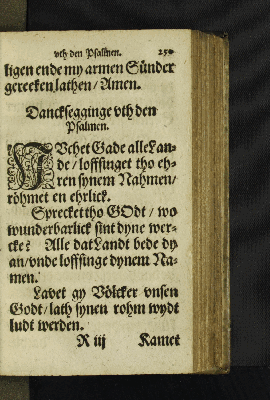 vth den Psalmen. 250
ligen ende my armen Sünder
gereeken lathen / Amen.
Dancksegginge vth den
Psalmen.
JVchet Gade alle Lan-
de / loffsinget tho eh-
ren synem Nahmen /
röhmet en ehrlick.
Sprecket tho GOdt / wo
wunderbarlick sint dyne wer-
cke? Alle dat Landt bede dy
an / vnde loffsinge dynem Na-
men.
Lavet gy Völcker vnsen
Godt / lath synen rohm wydt
ludt werden.
R iij Kamet